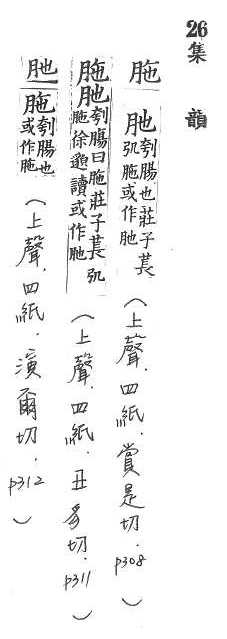 26 集 韻
胣 肔 刳腸也莊子萇弘胣或作肔 (上聲.四紙.賞是切.p308)
胣肔 刳腸曰胣莊子萇弘胣徐邈讀或作肔 (上聲.四紙.丑豸切.p311)
肔 胣 刳腸也或作肔 (上聲.四紙.演爾切.p312)